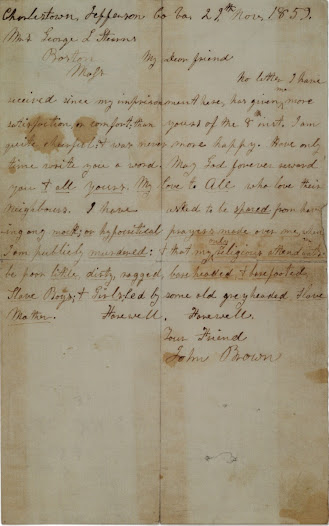 Charlestown, Jefferson Co Va. 29th Nov. 1859.
Mrs George L Stearns
Boston
Mass
My Dear Friend
No letter I have
received since my imprisonment here, has given me more
satisfaction, or comfort, than yours of the 8th inst. I am
quite cheerful: & was never more happy. Have only
time write you a word. May God forever reward
you & all yours. My love to All who love their
neighbours. I have asked to be spared from having
ing any mock; or hypocritical prayers made over me, when
I am publicly murdered: & that my only religious attendants
be poor little, dirty, ragged, bare headed & barefooted,
Slave Boys; & Girls; led by some old greyheaded Slave
Mother. Farewell. Farewell.
Your Friend
John Brown